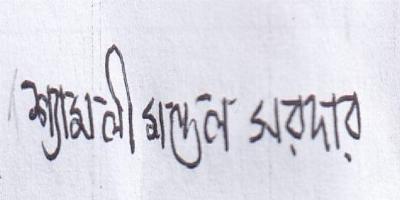 শ্যামলী মন্ডল সরদার